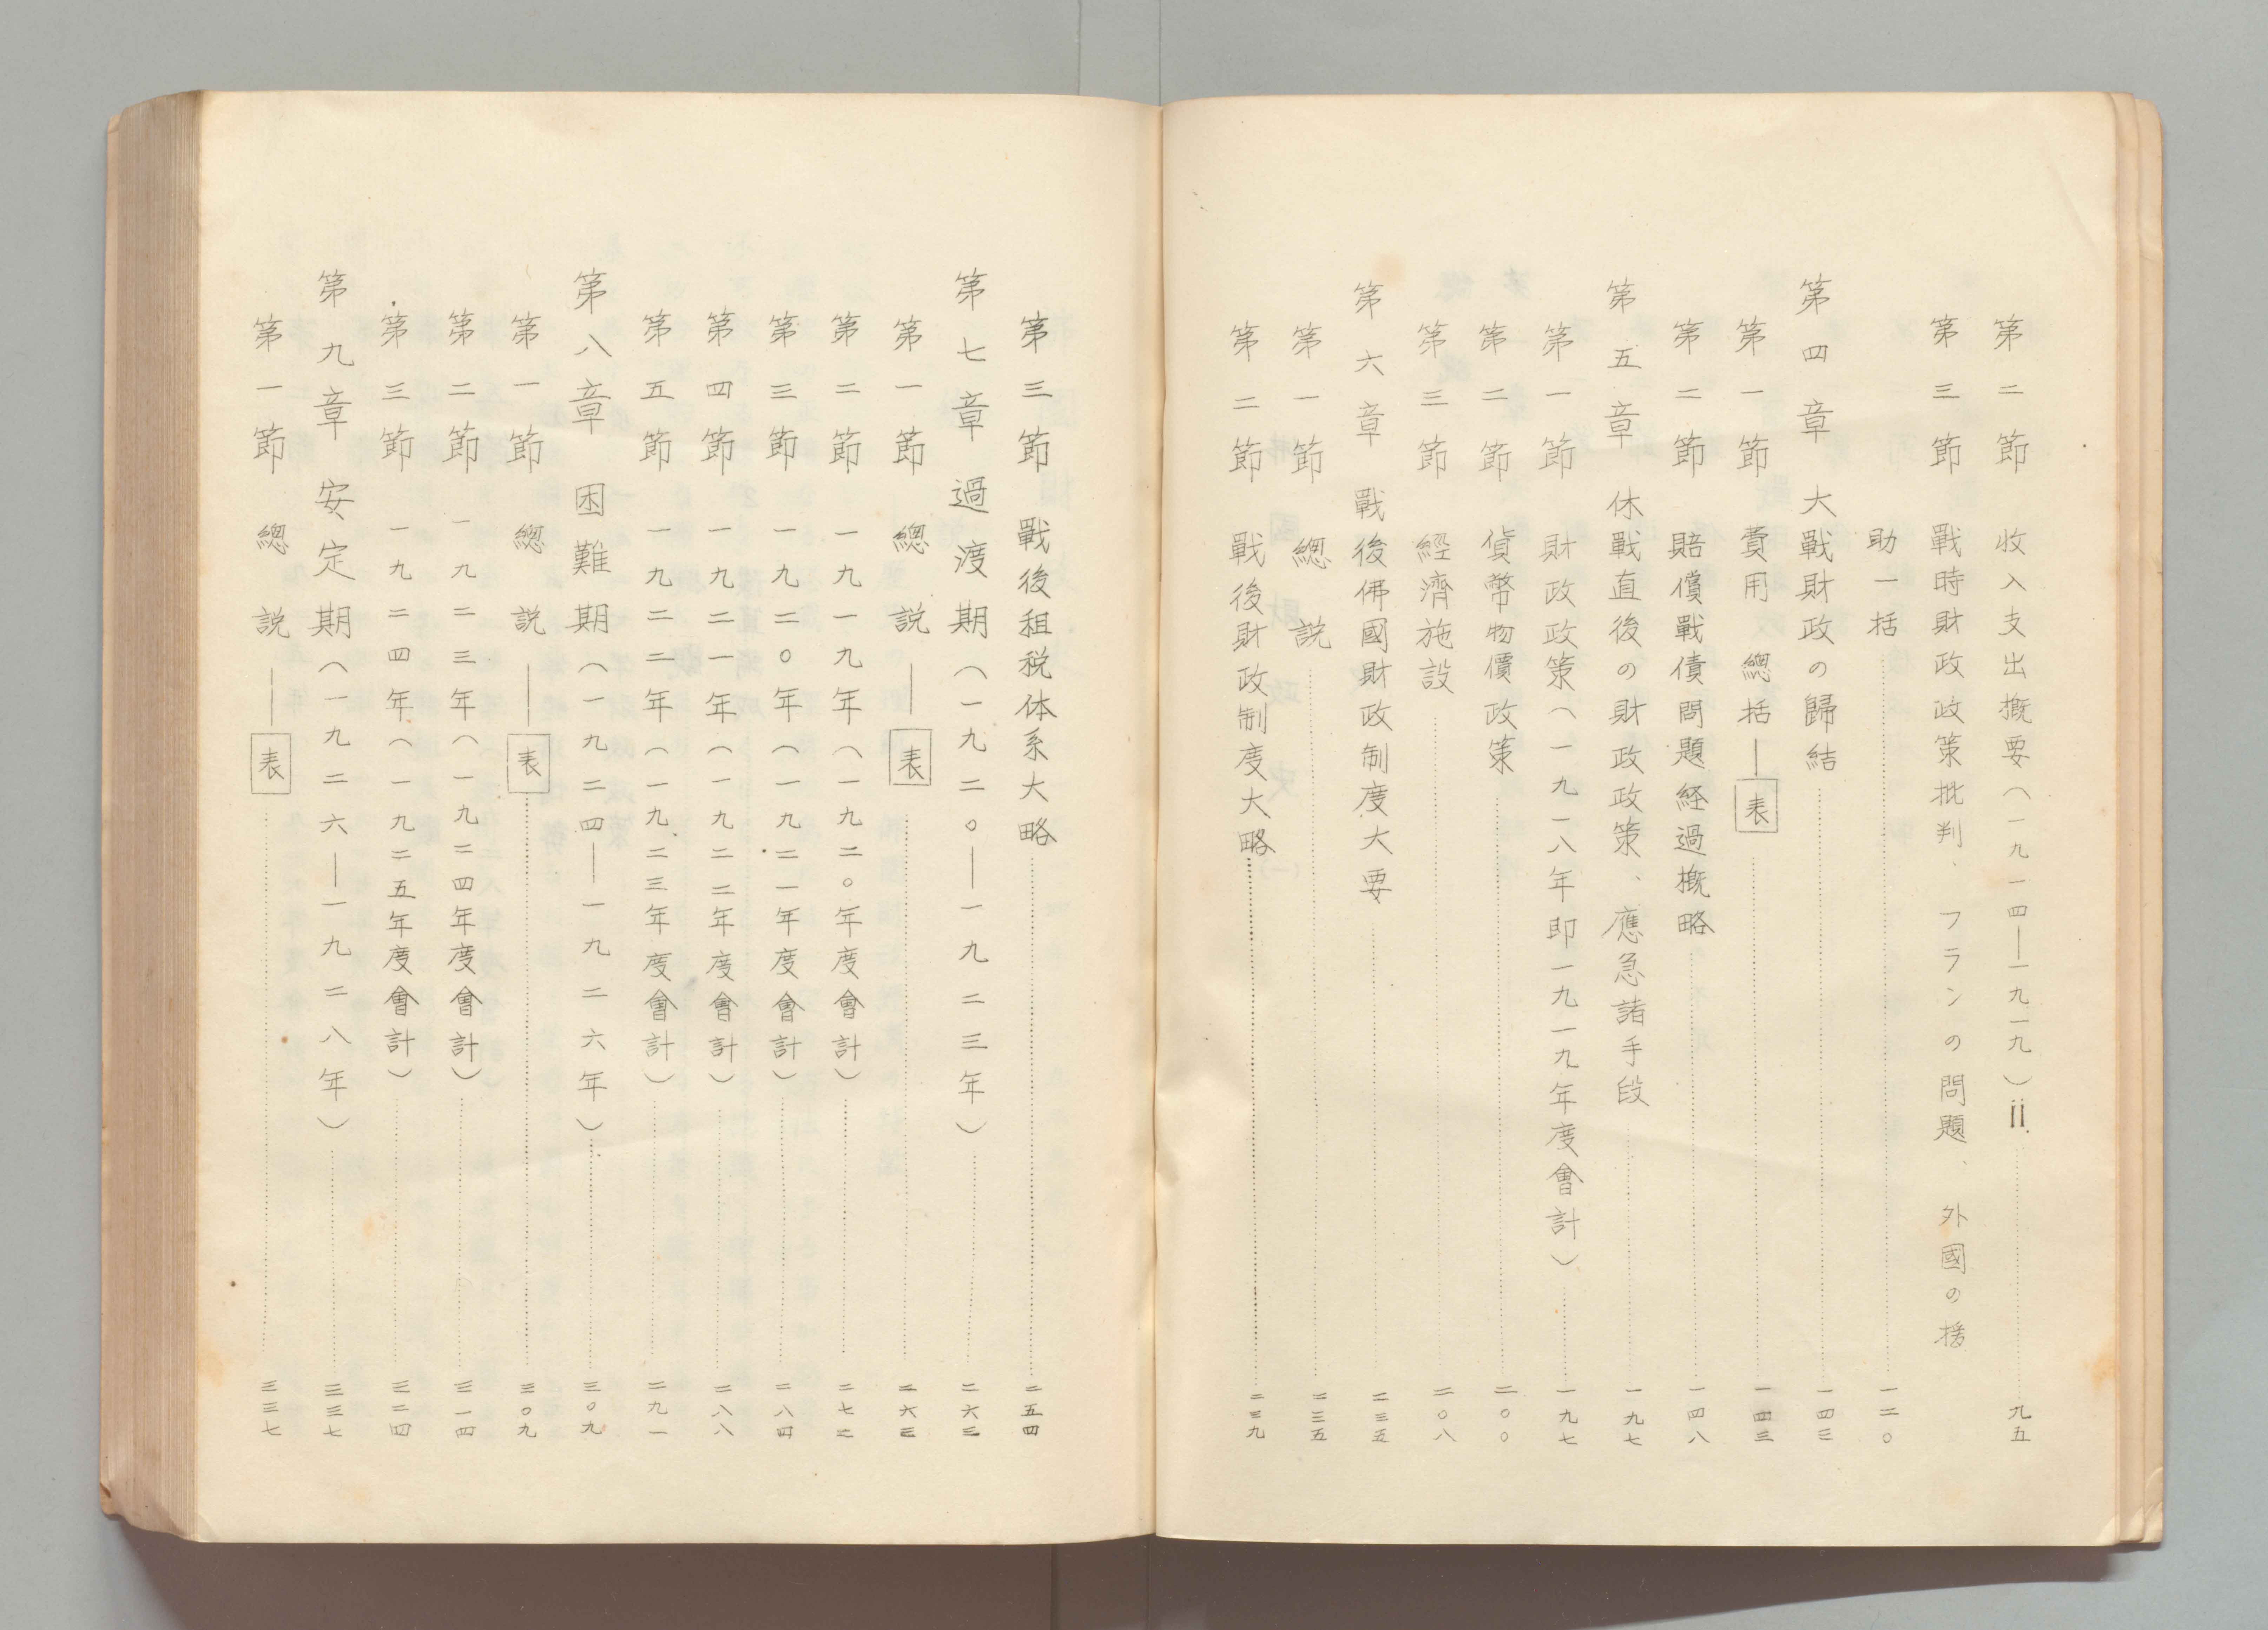 第二節　收入支出概要（一九一四―一九一九）ii……九五
第三節　戰時財政政策批判、フランの問題、外國の援
助一括……一二〇
第四章　大戰財政の歸結……一四三
第一節　費用總括―表……一四三
第二節　賠償戰債問題経過概略……一四八
第五章　休戰直後の財政政策、應急諸手段……一九七
第一節　財政政策（一九一八年即一九一九年度會計）……一九七
第二節　貨幣物價政策……二〇〇
第三節　經濟施設……二〇八
第六章　戰後佛國財政制度大要……二三五
第一節　總説……二三五
第二節　戰後財政制度大略……二三九
第三節　戰後租税体系大略……二五四
第七章　過渡期（一九二〇―一九二三年）……二六三
第一節　總説―表……二六三
第二節　一九一九年（一九二〇年度會計）……二七二
第三節　一九二〇年（一九二一年度會計）……二八四
第四節　一九二一年（一九二二年度會計）……二八八
第五節　一九二二年（一九二三年度會計）……二九一
第八章　困難期（一九二四―一九二六年）……三〇九
第一節　總説―表……三〇九
第二節　一九二三年（一九二四年度會計）……三一四
第三節　一九二四年（一九二五年度會計）……三二四
第九章　安定期（一九二六―一九二八年）……三三七
第一節　總説―表……三三七